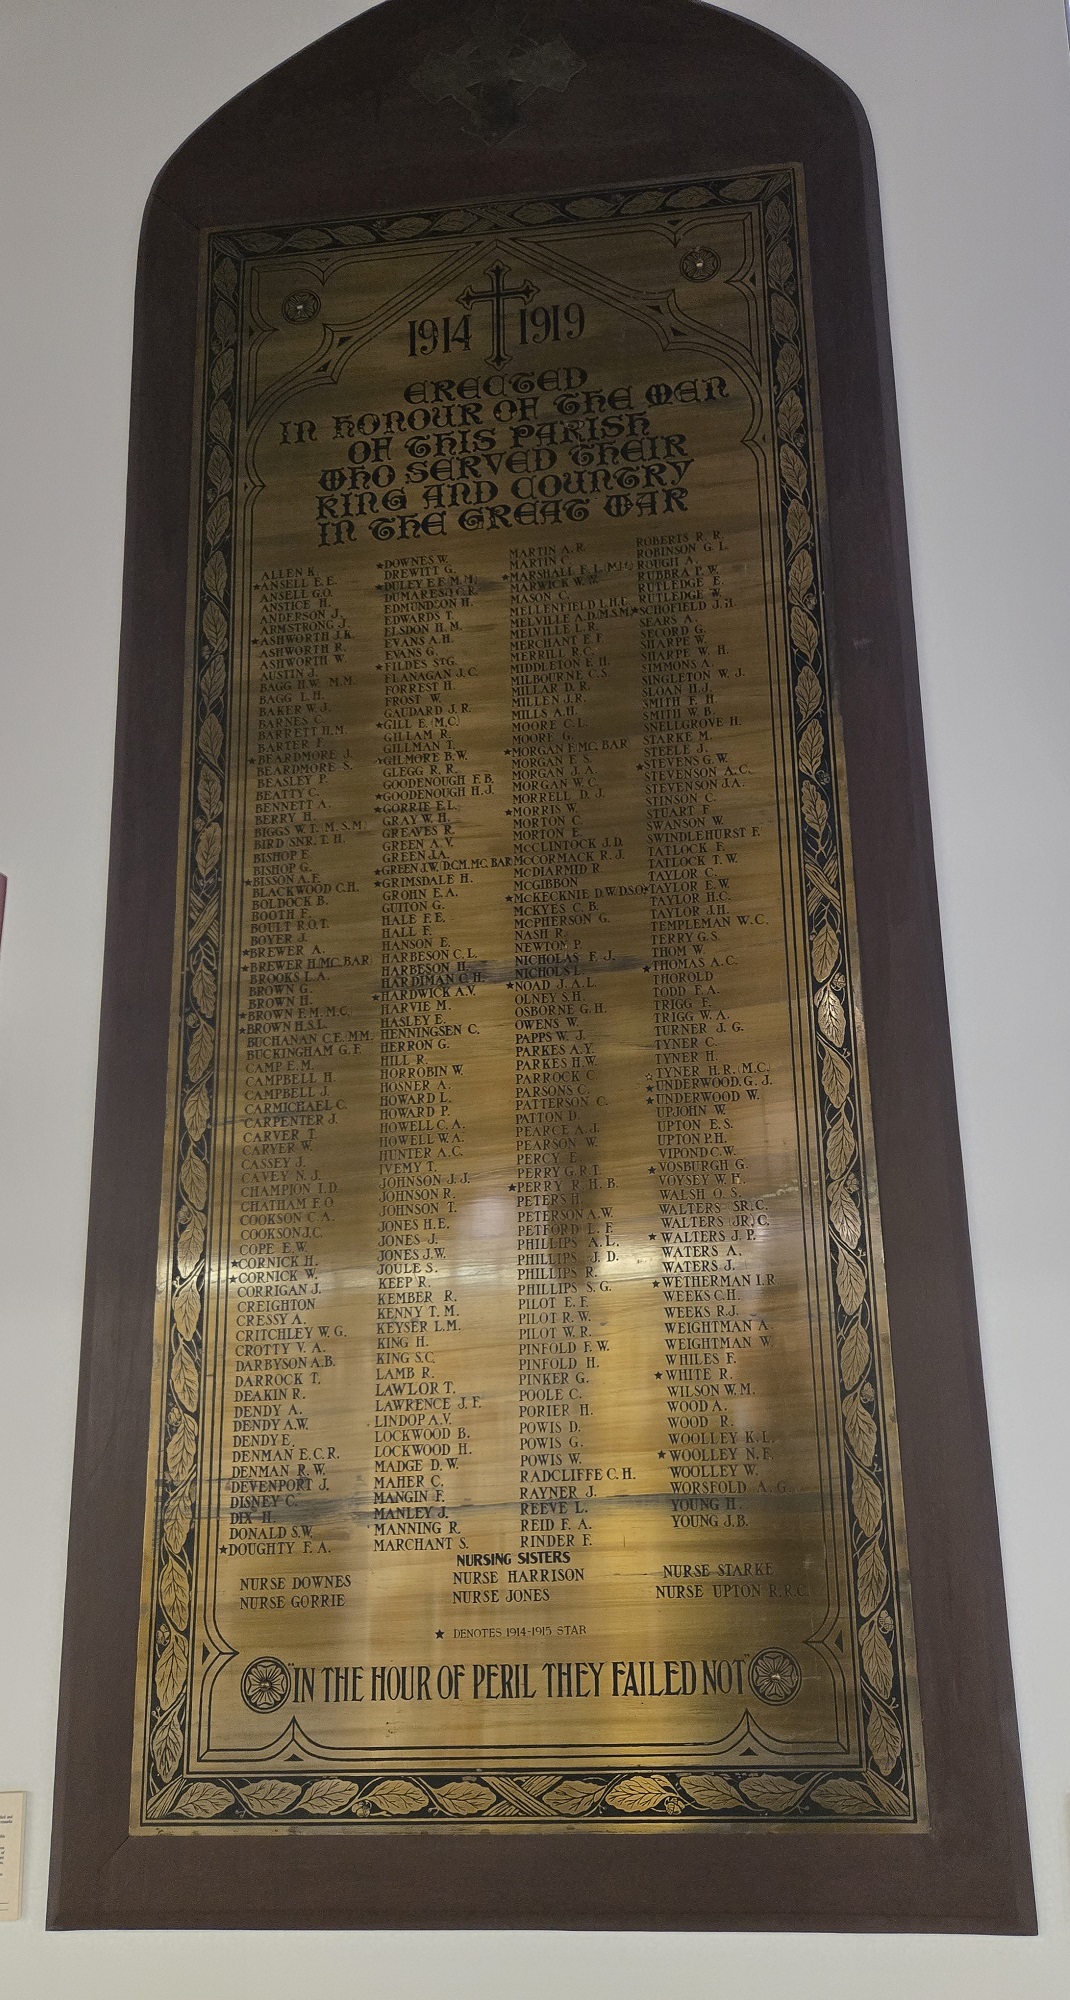 1914 1919
ERECTED
IN HONOUR OF THE MEN
OF THIS PARISH
WHO SERVED THEIR
KING AND COUNTRY
IN THE GREAT WAR
ALLEN K.
★ANSELL E.E.
ANSELL G.O.
ANSTICE H.
ANDERSON J.
ARMSTRONG J.
★ASHWORTH J.K.
ASHWORTH R.
ASHWORTH W.
AUSTIN J.
BAGG H.W. M.M.
BAGG L.H.
BAKER W.J.
BARNES C.
BARRETT H.M.
BARTER F.
★BEARDMORE J.
BEARDMORE S.
BEASLEY P.
BEATTY C.
BENNETT A.
BERRY H.
BIGGS W.T. M.S.M.
BIRD SNR. T. H.
BISHOP E.
BISHOP G.
★BISSON A.F.
BLACKWOOD C.H.
BOLDOCK B.
BOOTH F.
BOULT R.O.T.
BOYER J.
★BREWER A.
★BREWER H.(MC.BAR)
BROOKS L.A.
BROWN G.
BROWN H.
★BROWN F.M. M.C.
★BROWN H.S.L.
BUCHANAN C.E.(MM.
BUCKINGHAM G.F.
CAMP E.M.
CAMPBELL H.
CAMPBELL J.
CARMICHAEL C.
CARPENTER J.
CARVER T.
CARYER W.
CASSEY J.
CAVEY N.J.
CHAMPION I.D.
CHATHAM F.O.
COOKSON C.A.
COOKSON J.C.
COPE E.W.
★CORNICK H.
★CORNICK W.
CORRIGAN J.
CREIGHTON
CRESSY A.
CRITCHLEY W.G.
CROTTY V.A.
DARBYSON A.B.
DARROCK T.
DEAKIN R.
DENDY A.
DENDY A.W.
DENDY E.
DENMAN E.C.R.
DENMAN R.W.
DEVENPORT J.
DISNEY C.
DIX H.
DONALD S.W.
★DOUGHTY F.A.
★DOWNES W.
DREWITT G.
★DULEY E.F. M.M.
DUMARESQ C.R.
EDMUNDSON H.
EDWARDS T.
ELSDON H.M.
EVANS A.H.
EVANS G.
★FILDES ST.G.
FLANAGAN J.C.
FORREST H.
FROST W.
GAUDARD J.R.
★GILL E. (M.C.)
GILLAM R.
GILLMAN T.
★GILMORE B.W.
GLEGG R.R.
GOODENOUGH F.B.
★GOODENOUGH H.J.
★GORRIE E.L.
GRAY W.H.
GREAVES R.
GREEN A.V.
GREEN J.A.
★GREEN J.W. D.C.M. MC. BAR
★GRIMSDALE H.
GROHN E.A.
GUITON G.
HALE F.E.
HALL F.
HANSON E.
HARBESON C.L.
HARBESON H.
HARDIMAN C.H.
★HARDWICK A.V.
HARVIE M.
HASLEY E.
HENNINGSEN C.
HERRON G.
HILL R.
HORROBIN W.
HOSNER A.
HOWARD L.
HOWARD P.
HOWELL C.A.
HOWELL W.A.
HUNTER A.C.
IVEMY T.
JOHNSON J.J.
JOHNSON R.
JOHNSON T.
JONES H.E.
JONES J.
JONES J.W.
JOULE S.
KEEP R.
KEMBER R.
KENNY T.M.
KEYSER L.M.
KING H.
KING S.C.
LAMB R.
LAWLOR T.
LAWRENCE J.F.
LINDOP A.V.
LOCKWOOD B.
LOCKWOOD H.
MADGE D.W.
MAHER C.
MANGIN F.
MANLEY J.
MANNING R.
MARCHANT S.
MARTIN A.R.
MARTIN C.
★MARSHALL F.L.
MARWICK W.W.
MASON C.
MELLENFIELD
MELVILLE A.D.(M.S.M.)
MELVILLE L.R.
MERCHANT E.F.
MERRILL R.C.
MIDDLETON E.H.
MILBOURNE C.S.
MILLAR D.R.
MILLEN J.R.
MILLS A.H.
MOORE C.L.
MOORE G.
★MORGAN F. MC. BAR
MORGAN E.S.
MORGAN J.A.
MORGAN W.C.
MORRELL D.J.
★MORRIS W.
MORTON C.
MORTON E.
MCCLINTOCK J.D.
MCCORMACK R.J.
MCDIARMID R.
MCGIBBON
★MCKECKNIE D.W. D.S.O.
MCKYES C.B.
MCPHERSON G.
NASH R.
NEWTON P.
NICHOLAS F.J.
NICHOLS L.
★NOAD J.A.L.
OLNEY S.H.
OSBORNE G.H.
OWENS W.
PAPPS W.J.
PARKES A.Y.
PARKES H.W.
PARROCK C.
PARSONS C.
PATTERSON C.
PATTON D.
PEARCE A.J.
PEARSON W.
PERCY E.
PERRY G.R.T.
★PERRY R.H.B.
PETERS H.
PETERSON A.W.
PETFORD L.F.
PHILLIPS A.L.
PHILLIPS J.D.
PHILLIPS R.
PHILLIPS S.G.
PILOT E.F.
PILOT R.W.
PILOT W.R.
PINFOLD F.W.
PINFOLD H.
PINKER G.
POOLE C.
PORIER H.
POWIS D.
POWIS G.
POWIS W.
RADCLIFFE C.H.
RAYNER J.
REEVE L.
REID F.A.
RINDER F.
ROBERTS R.R.
ROBINSON G.L.
ROUGH A.
RUBBRA P.W.
RUTLEDGE E.
RUTLEDGE W.
★SCHOFIELD J.H.
SEARS A.
SECORD G.
SHARPE W.
SHARPE W.H.
SIMMONS A.
SINGLETON W.J.
SLOAN H.J.
SMITH F.H.
SMITH W.B.
SNELLGROVE H.
STARKE M.
STEELE J.
★STEVENS G.W.
STEVENSON A.C.
STEVENSON J.A.
STINSON C.
STUART F.
SWANSON W.
SWINDLEHURST F.
TATLOCK F.
TATLOCK T.W.
TAYLOR C.
★TAYLOR E.W.
TAYLOR H.C.
TAYLOR J.H.
TEMPLEMAN W.C.
TERRY G.S.
THOM W.
★THOMAS A.C.
THOROLD
TODD F.A.
TRIGG F.
TRIGG W.A.
TURNER J.G.
TYNER C.
TYNER H.
★TYNER H.R. (M.C.)
★UNDERWOOD. G.J.
★UNDERWOOD W.
UPJOHN W.
UPTON E.S.
UPTON P.H.
VIPOND C.W.
★VOSBURGH G.
VOYSEY W.H.
WALSH O.S.
WALTERS (SR.) C.
WALTERS (JR.) C.
★WALTERS J.P.
WATERS A.
WATERS J.
★WETHERMAN I.R
WEEKS C.H.
WEEKS R.J.
WEIGHTMAN A.
WEIGHTMAN W.
WHILES F.
★WHITE R.
WILSON W.M.
WOOD A.
WOOD R.
WOOLLEY K.L.
★WOOLLEY N.F.
WOOLLEY W.
WORSFOLD A.G.
YOUNG H.
YOUNG J.B.
NURSING SISTERS
NURSE DOWNES NURSE HARRISON NURSE STARKE
NURSE GORRIE NURSE JONES NURSE UPTON R.R.C.
★ DENOTES 1914-1915 STAR
"IN THE HOUR OF PERIL THEY FAILED NOT"